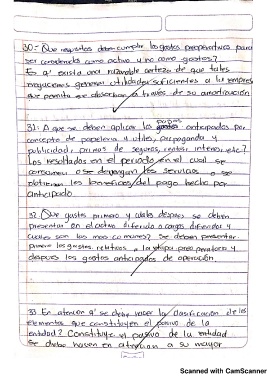 30.- Que requisitos deben cumplir los gastos preoperativos para
ser considerados como activo y no como gastos?
Es q' exista una razonable certeza de que tales
negociaciones generen utilidades suficientes a las empresas
que permita se absorban a través de su amortización
31.- A que se deben aplicar los pagos anticipados por
concepto de papeleria y utiles, propaganda y
publicidad, primas de seguros, rentas, interes, etc?
Los resultados en el periodo en el cual se
consumen o se devengan los servicios o se
obtienen los beneficios del pago hecho por
anticipado.
32. Que gastos primero y cuales despues se deben
presentar en el activo diferido o cargos diferidos y
cuales son los mas comunes? Se deben presentar
primero los gastos relativos a la etapa preoperatoria y
despues los gastos anticipados de operación.
33. En atencion a' se debe hacer la clasificación de los
elementos que constituyen el pasivo de la
entidad? Constituye el pasivo de la entidad
se debe hacer en atención a su mayor
Scanned with CamScanner